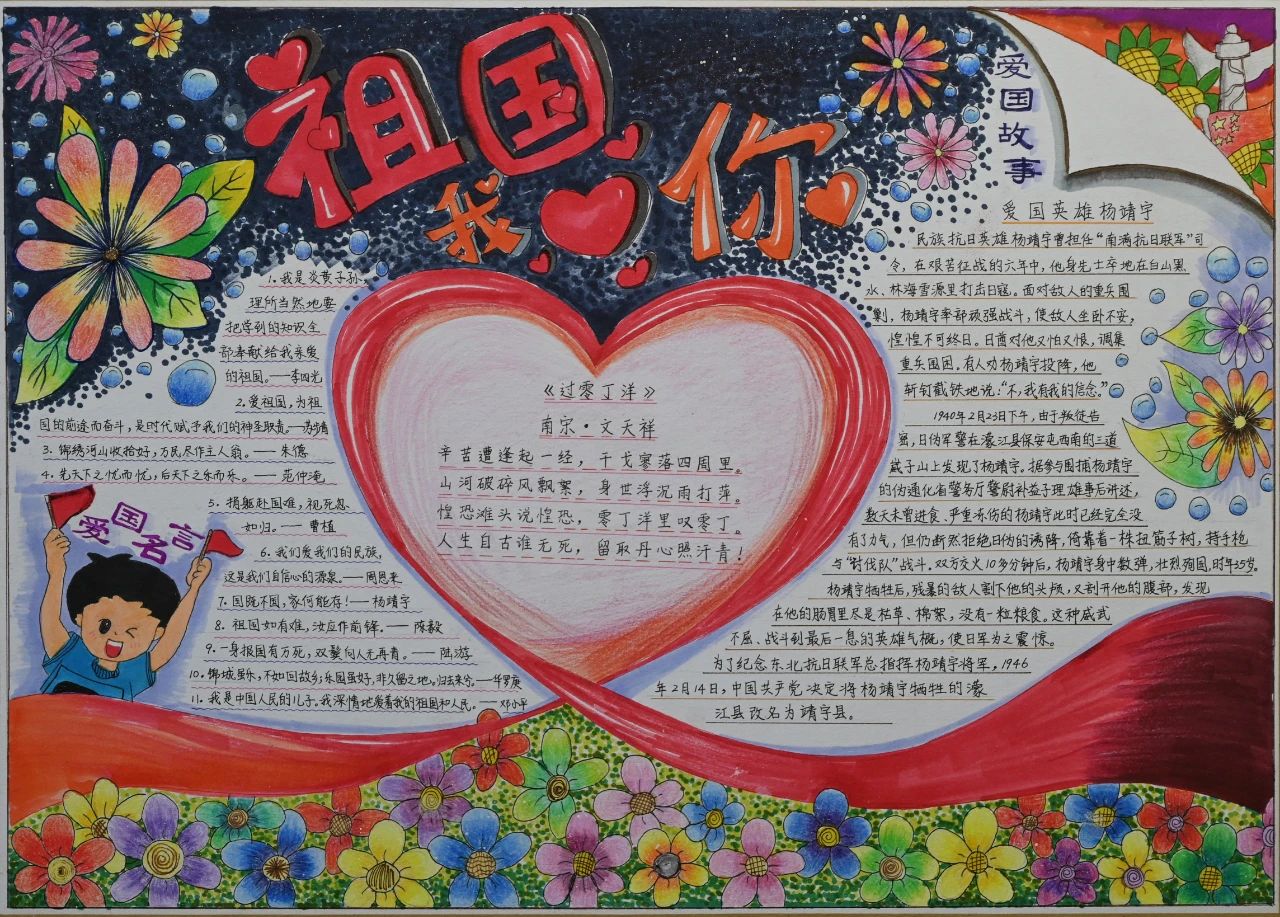 祖国
我 你
1. 我是炎黄子孙、
理所当然地要
把学到的知识全
部奉献给我亲爱
的祖国。——李四光
2. 爱祖国，为祖
国的前途而奋斗，是时代赋予我们的神圣职责。——苏步青
3. 锦绣河山收拾好，万民尽作主人翁。—— 朱德
4. 先天下之忧而忧，后天下之乐而乐。—— 范仲淹
5. 捐躯赴国难，视死忽
如归。—— 曹植
爱国名言
6. 我们爱我们的民族，
这是我们自信心的源泉。——周恩来
7. 国既不国，家何能存！—— 杨靖宇
8. 祖国如有难，汝应作前锋。—— 陈毅
9. 一身报国有万死，双鬓向人无再青。—— 陆游
10. 锦城虽乐，不如回故乡；乐园虽好，非久留之地。归去来兮。——华罗庚
11. 我是中国人民的儿子。我深情地爱着我的祖国和人民。——邓小平
《过零丁洋》
南宋·文天祥
辛苦遭逢起一经，干戈寥落四周里。
山河破碎风飘絮，身世浮沉雨打萍。
惶恐滩头说惶恐，零丁洋里叹零丁。
人生自古谁无死，留取丹心照汗青！
爱国故事
爱国英雄杨靖宇
民族抗日英雄杨靖宇曾担任“南满抗日联军”司
令，在艰苦征战的六年中，他身先士卒地在白山黑
水、林海雪源里打击日寇。面对敌人的重兵围
剿，杨靖宇率部顽强战斗，使敌人坐卧不安，
惶惶不可终日。日酋对他又怕又恨，调集
重兵围困。有人劝杨靖宇投降，他
斩钉截铁地说：“不，我有我的信念。”
1940年2月23日下午，由于叛徒告
密，日伪军警在濛江县保安屯西南的三道
崴子山上发现了杨靖宇。据参与围捕杨靖宇
的伪通化省警务厅警尉补益子理雄事后讲述，
数天未曾进食、严重冻伤的杨靖宇此时已经完全没
有了力气，但仍断然拒绝日伪的诱降，倚靠着一株扭筋子树，持手枪
与“讨伐队”战斗。双方交火10多分钟后，杨靖宇身中数弹，壮烈殉国，时年35岁。
杨靖宇牺牲后，残暴的敌人割下他的头颅，又剖开他的腹部，发现
在他的肠胃里尽是枯草、棉絮，没有一粒粮食。这种威武
不屈、战斗到最后一息的英雄气概，使日军为之震惊。
为了纪念东北抗日联军总指挥杨靖宇将军，1946
年2月14日，中国共产党决定将杨靖宇牺牲的濛
江县改名为靖宇县。